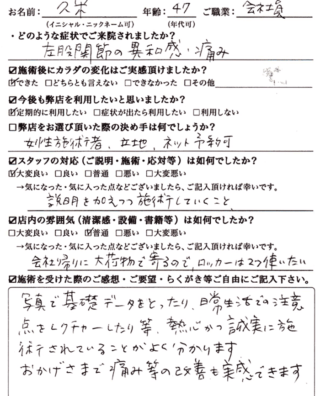 お名前： 久米 年齢： 47 ご職業： 会社員
(イニシャル・ニックネーム可) (年代可)
・どのような症状でご来院されましたか？
左股関節の異和感、痛み
☑施術後にカラダの変化はご実感頂けましたか？
☑できた □どちらとも言えない □できなかった □その他
☑今後も弊店を利用したいと思いましたか？
☑定期的に利用したい □症状が出たら利用したい □利用しない
□弊店をお選び頂いた際の決め手は何でしょうか？
女性施術者、立地、ネット予約可
☑スタッフの対応（ご説明・施術・応対等）は如何でしたか？
☑大変良い □良い □普通 □悪い □大変悪い
→気になった・気に入った点などございましたら、ご記入頂ければ幸いです。
説明を加えつつ施術していくこと
☑店内の雰囲気（清潔感・設備・書籍等）は如何でしたか？
□大変良い □良い ☑普通 □悪い □大変悪い
→気になった・気に入った点などございましたら、ご記入頂ければ幸いです。
会社帰りに大荷物で寄るので、ロッカーは2つ使いたい
☑施術を受けた際のご感想・ご要望・らくがき等ご自由にご記入下さい。
写真で基礎データをとったり、日常生活での注意
点をレクチャーしたり等、熱心かつ誠実に施
術されていることがよく分かります
おかげさまで痛み等の改善も実感できます